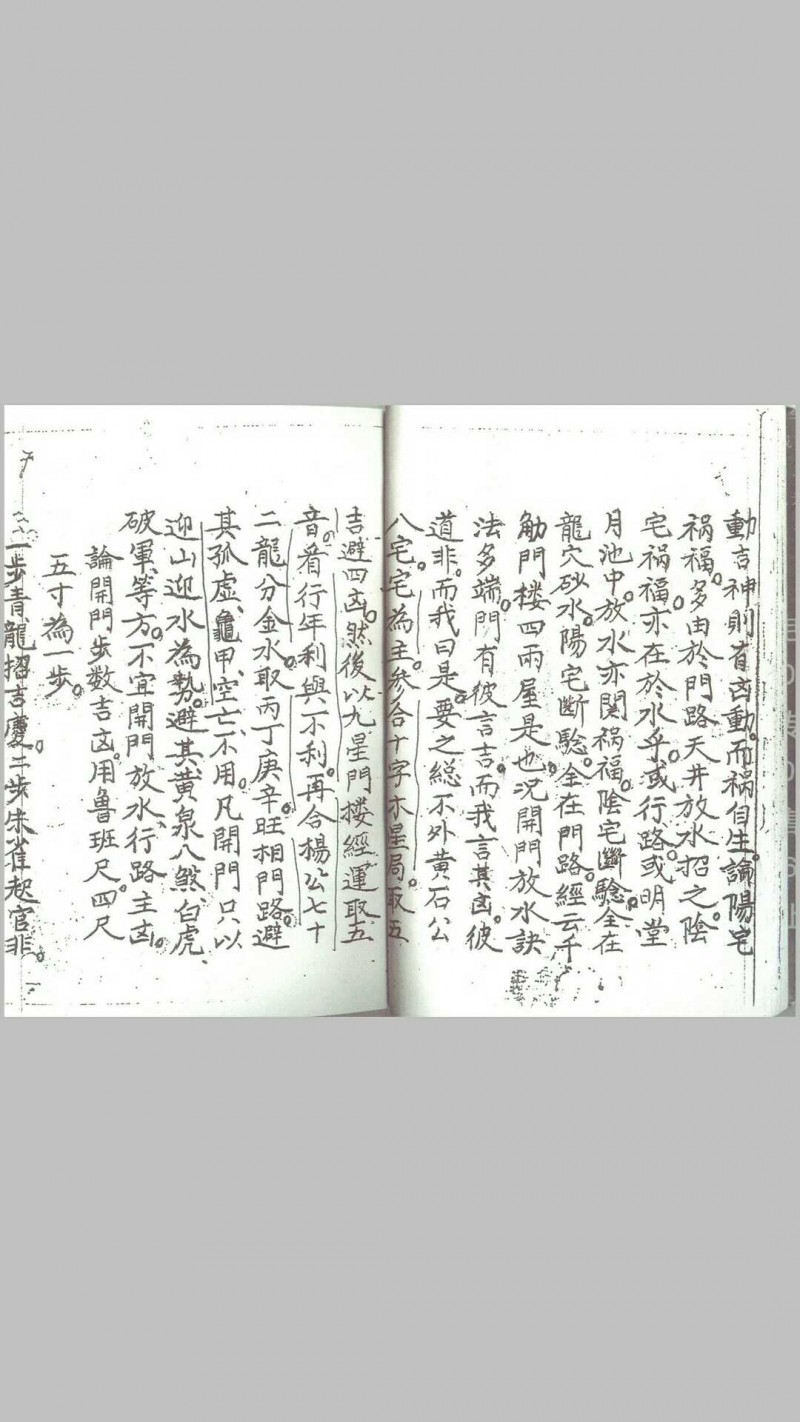 動吉神則有凶動。而禍自生。論陽宅
禍福。多由於門路天井放水招之。陰
宅禍福。亦在於水乎。或行路或明堂
月池中。放水亦関禍福。陰宅斷驗。全在
龍穴砂水。陽宅斷驗。全在門路。經云千
觔門楼四兩屋是也。况開門放水訣
法多端。門有彼言吉。而我言其凶。彼
道非。而我曰是。要之総不外黄石公
八宅。宅為主。參合十字木星局。取五
吉避四凶。然後以九星門楼經運取五
音。看行年利與不利。再合楊公七十
二龍分金水。取丙丁庚辛旺相門路。避
其孤虛、龜甲、空亡不用。凡開門只以
迎山迎水為勢。避其黄泉八煞、白虎、
破軍、等方。不宜開門放水、行路主凶。
論開門步数吉凶。用魯班尺四尺
五寸為一步。
一步青龍招吉慶。二步朱雀起官非。